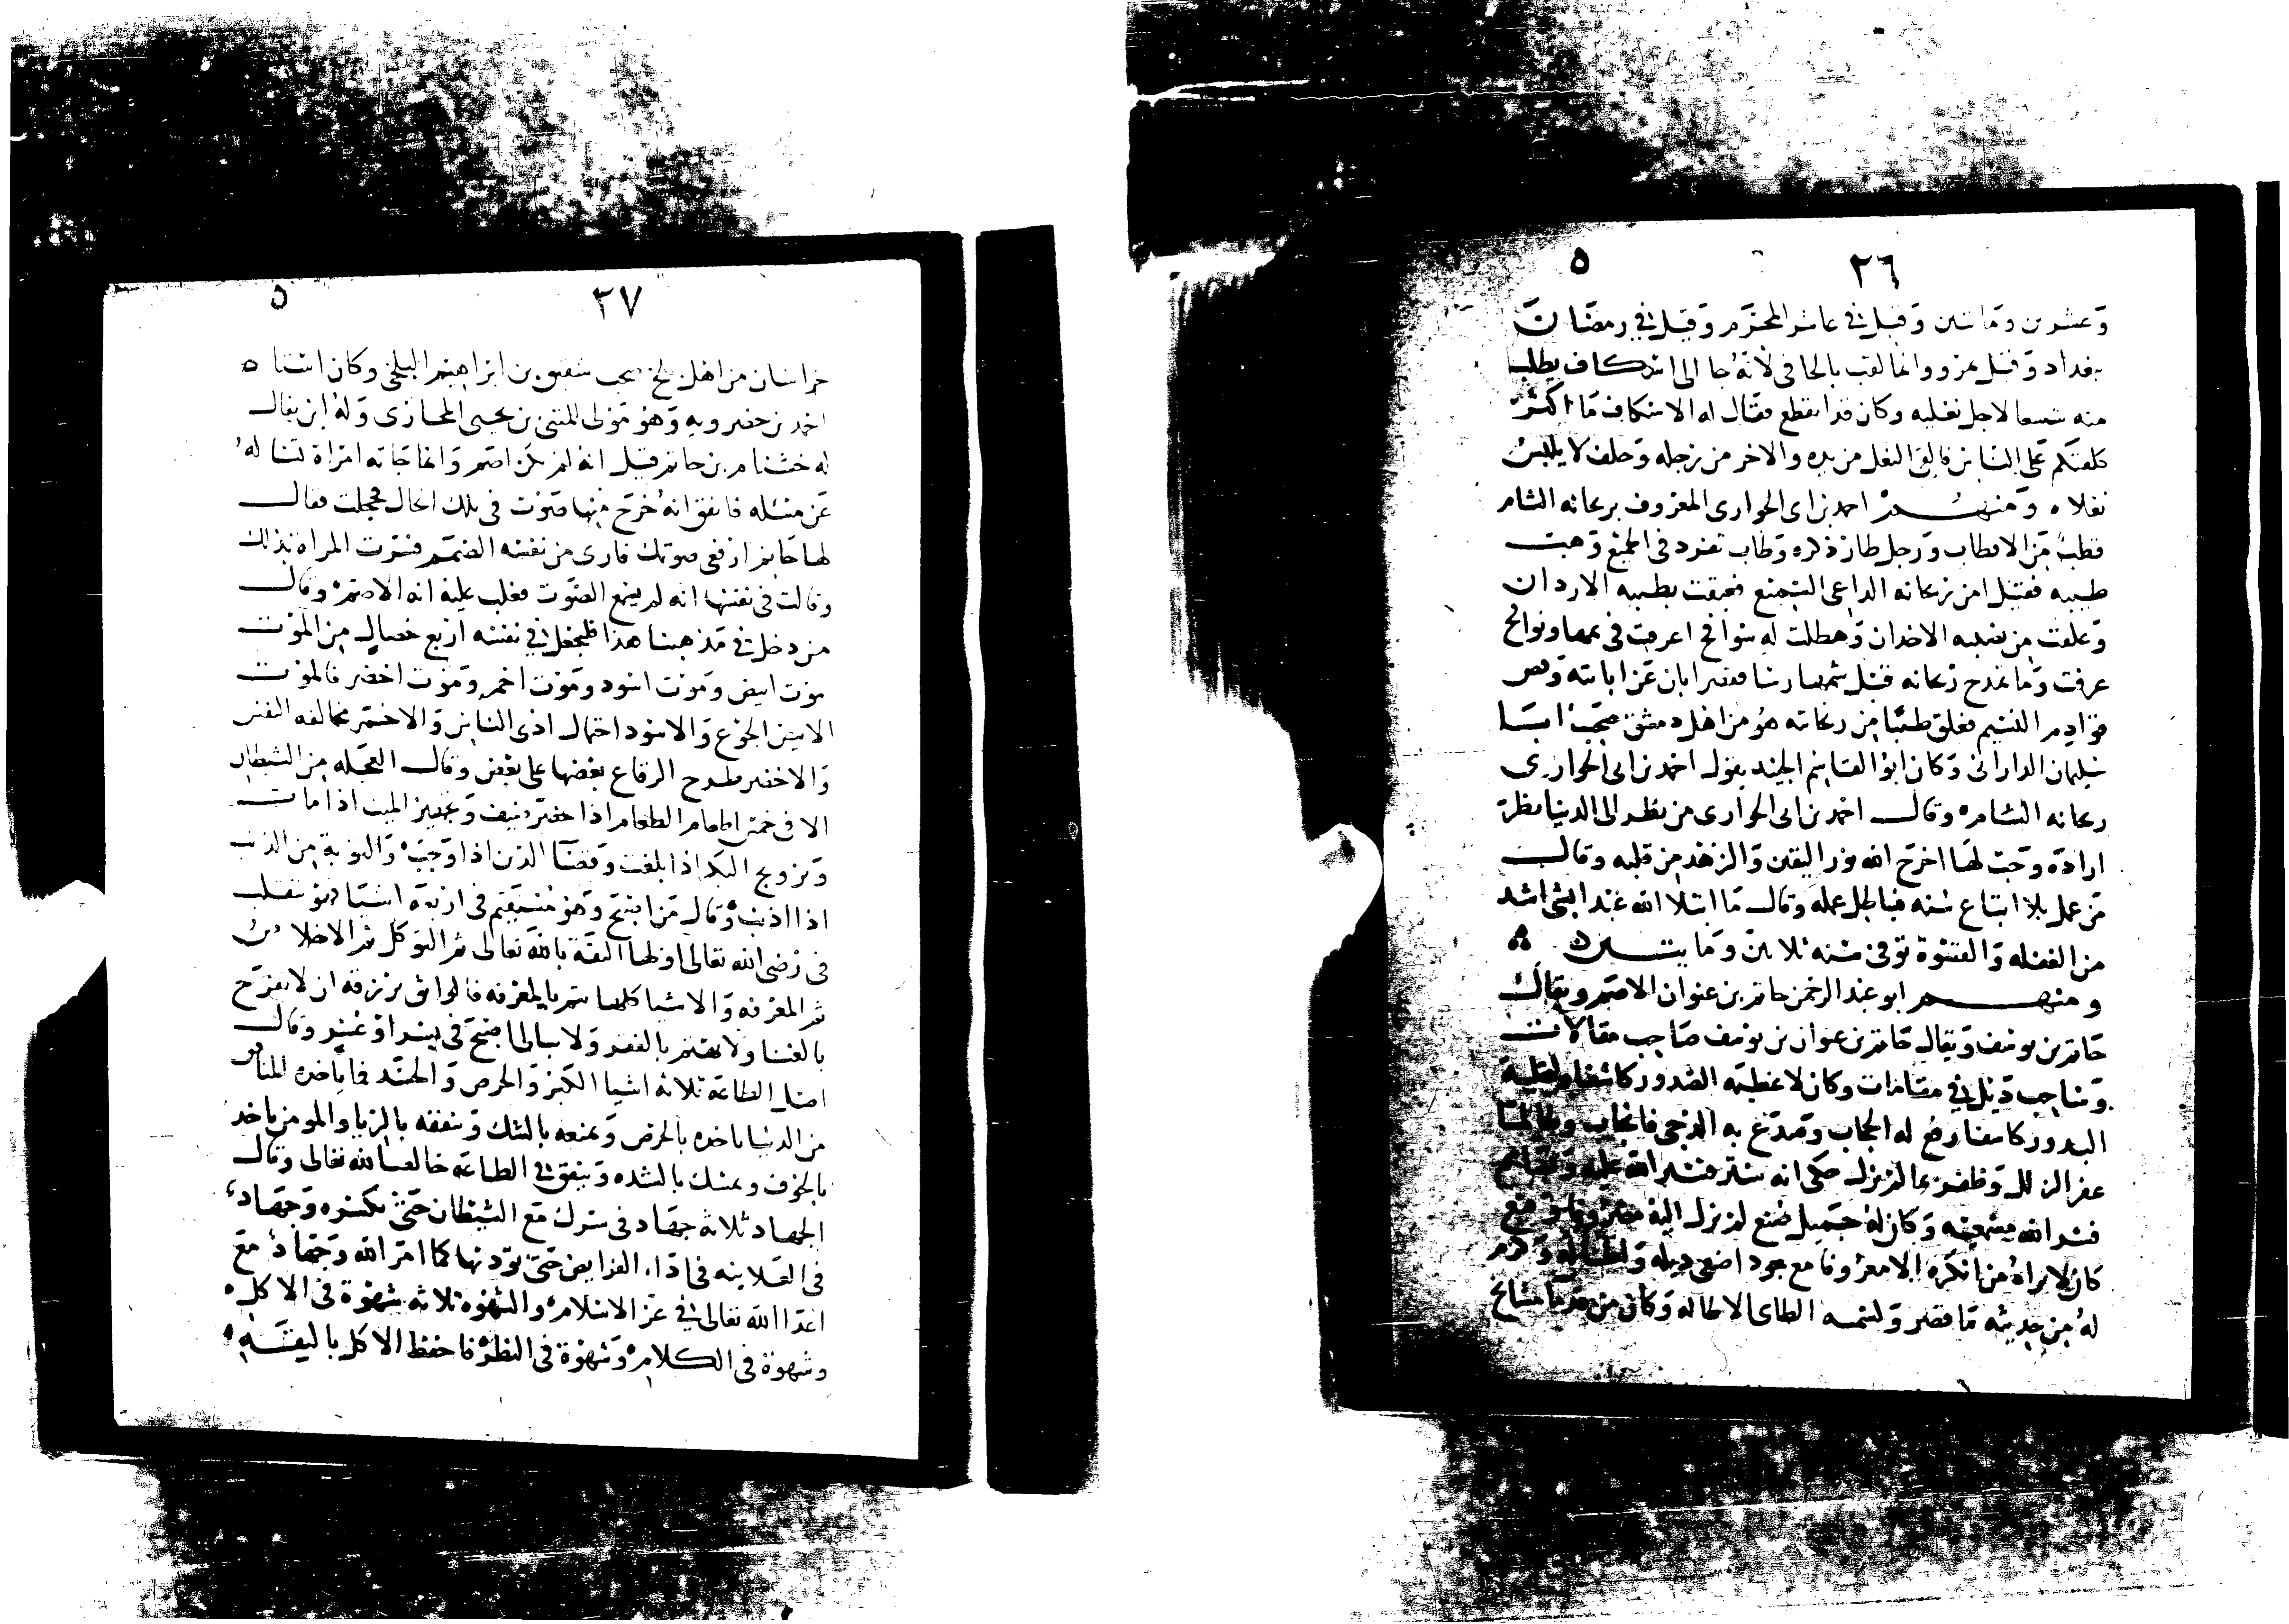 ٢٦ ٥
وعشرين ومائتين وقيل في عاشر المحرم وقيل في رمضان
ببغداد وقيل بمرو وانما لقب بالحافي لأنه جا الى اسكاف يطلب
منه شسعا لاجل نعليه وكان قد انقطع فقال له الاسكاف ما اكثر
كلفتكم على الناس فالقى النعل من يده والاخر من رجله وحلف لا يلبس
نعلا ه ومنهم احمد بن ابى الحوارى المعروف بريحانه الشام
قطب من الاقطاب ورجل طار ذكره وطاب تفرد فى الجمع وهبت
طيبه فقيل امن ريحانه الداعى السميع فعبقت بطيبه الاردان
وعلقت من بفضله الاخدان وهطلت له سوافح اعرقت فى عمها ونوافح
عرفت وما تمدح ريحانه قبل شمها
قوادم النسيم فعلق طيبا من ريحانه هو من اهل دمشق صحب ابا
سليمان الدارانى وكان ابو القاسم الجنيد يقول احمد بن ابى الحوارى
ريحانه الشام ه وقال احمد بن ابى الحوارى من نظر الى الدنيا نظرة
ارادة وحب لها اخرج الله نور اليقين والزهد من قلبه وقال
من عمل بلا اتباع سنه فباطل عمله وقال ما ابتلا الله عبد الشى اشد
من الغفله والقسوة توفى سنه ثلاثين ومايتين ه
ومنهم ابو عبد الرحمن حاتم بن عنوان الاصم ويقال
حاتم بن يوسف ويقال حاتم بن عنوان بن يوسف صاحب مقالات
وساحب ذيل في مقامات وكان لاغطيه الصدور كاشفا
البدور كاسفا رفع له الحجاب وصدع به الدجى فانجاب
عفر الزلل وظفر بما لم يزل حكى انه ستر فستر الله عليه
فستر الله وكان له جميل صنع لم يزل اليه
كان لا يراه من انكره الا معروفا مع جود اضفى ذيله
له من حديثه ما قصر الطاى الاطاله وكان من قدما مشايخ
٢٧ ٥
خراسان من اهل بلخ صحب شقيق بن ابراهيم البلخى وكان استاذ
احمد بن خضرويه وهو مولى للمثنى بن يحيى المحاربى وله ابن يقال
له خشنام بن حاتم قيل انه لم يكن اصم وانما جاته امراة تساله
عن مسئله فاتفق انه خرج منها صوت فى تلك الحال فخجلت فقال
لها حاتم ارفعى صوتك فارى من نفسه الصمم فسرت المراه بذلك
وقالت فى نفسها انه لم يسمع الصوت فغلب عليه انه الاصم ه وقال
من دخل في مذهبنا هذا فليجعل في نفسه اربع خصال من الموت
موت ابيض وموت اسود وموت احمر وموت اخضر فالموت
الابيض الجوع والاسود احتمال اذى الناس والاحمر مخالفه النفس
والاخضر طرح الرقاع بعضها على بعض وقال العجله من الشيطان
الا فى خمس اطعام الطعام اذا حضر ضيف وتجهيز الميت اذا مات
وتزويج البكر اذا بلغت وقضا الدين اذا وجب والتوبة من الذنب
اذا اذنب وقال من اصبح وهو مستقيم فى اربعة اشيا فهو يتقلب
فى رضى الله تعالى اولها الثقة بالله تعالى ثم التوكل ثم الاخلاص
ثم المعرفه والاشيا كلها تتم بالمعرفه فالواثق برزقه ان لا يفرح
بالغنا ولا يهتم بالفقر ولا يبالى اصبح فى يسر او عسر وقال
اصل الطاعة ثلاثه اشيا الكبر والحرص والحسد فيأخذه المنافق
من الدنيا باخذه بالحرص ويمنعه بالشك وينفقه بالريا والمومن ياخذ
بالخوف ويمسك بالشده وينفق في الطاعه خالصا لله تعالى وقال
الجهاد ثلاثه جهاد فى سرك مع الشيطان حتى تكسره وجهاد
فى العلانيه فى اداء الفرايض حتى تؤدنها كما امر الله وجهاد مع
اعدا الله تعالى في عز الاسلام ه والشهوه ثلاثه شهوة فى الاكل ه
وشهوة فى الكلام ه وشهوة فى النظر ه فاحفظ الاكل باليقنه